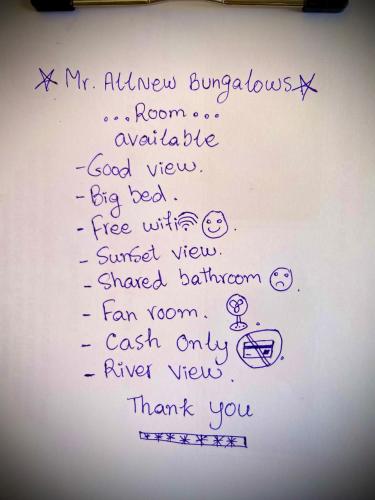 Mr. AllNew Bungalows
...Room...
available
- Good view.
- Big bed.
- Free wifi.
- Sunset view.
- Shared bathroom.
- Fan room.
- Cash Only.
- River view.
Thank you